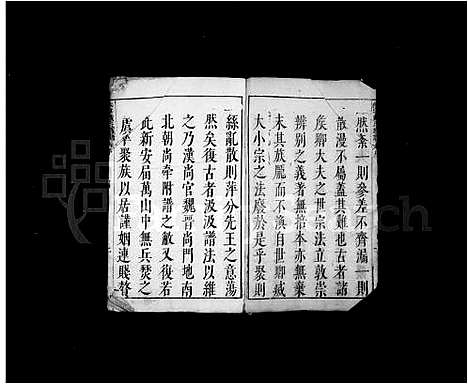 然紊一則參差不齊漏一則
散漫不屬蓋其難也古者諸
侯卿大夫之世宗法立敦崇
辨別之義者無倍本亦無棄
末其族厖而不渙自世卿
大小宗之法廢於是乎聚則
絲亂散則萍分先王之意蕩
然矣復古者汲汲譜法以維
之乃漢尚官魏晉尚門地南
北朝尚牽附譜之敝又復若
此新安居萬山中無兵燹之
虞聚族以居謹姻連賤聲